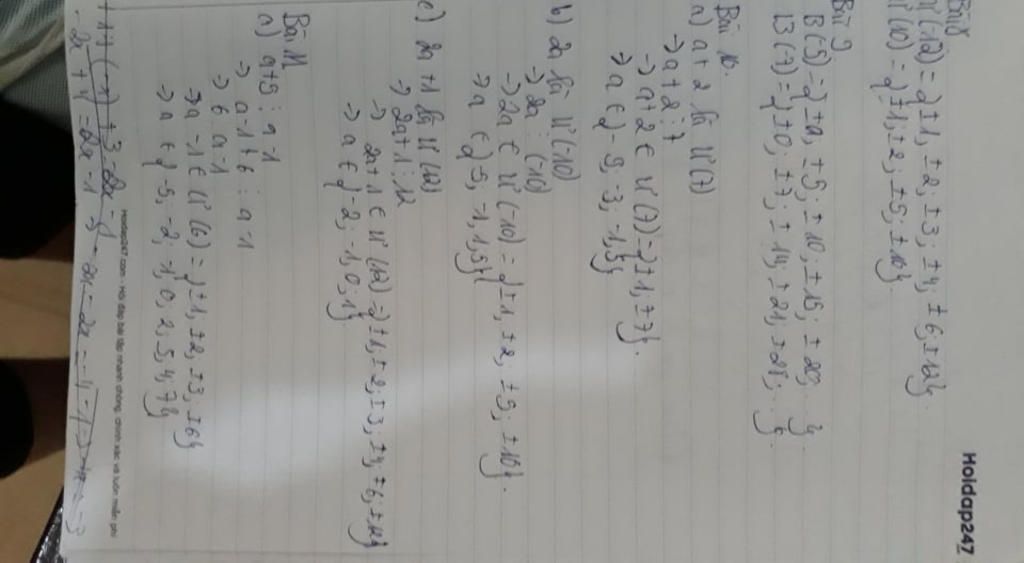 Hoidap247
Bài 8
Ư(-12) = {±1, ±2; ±3; ±4; ±6; ±12}.
Ư(10) = {±1; ±2; ±5; ±10}.
Bài 9
B(5) = {±0, ±5; ±10, ±15; ±20; ...}.
B(7) = {±0; ±7; ±14; ±21; ±28; ...}.
Bài 10.
a) a+2 là Ư(7)
→ a+2 ⋮ 7
→ a+2 ∈ Ư(7) = {±1, ±7}.
→ a ∈ {-9, -3, -1, 5}.
b) 2a là Ư(-10)
→ 2a ⋮ (-10)
→ 2a ∈ Ư(-10) = {±1, ±2; ±5, ±10}.
→ a ∈ {-5, -1, 1, 5}
c) 2a+1 là Ư(12)
→ 2a+1 ⋮ 12
→ 2a+1 ∈ Ư(12) = {±1, ±2, ±3, ±4, ±6, ±12}
→ a ∈ {-2, -1, 0, 1}.
Bài 11
a) a+5 ⋮ a-1
→ a-1+6 ⋮ a-1
→ 6 a-1
→ a-1 ∈ Ư(6) = {±1, ±2, ±3, ±6}
→ a ∈ {-5, -2, -1, 0, 2, 3, 4, 7}
Hoidap247.com - Hỏi đáp bài tập nhanh chóng, chính xác và luôn miễn phí